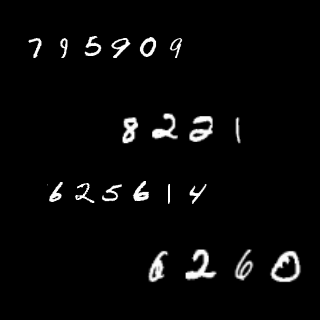 795909
8221
625614
6260